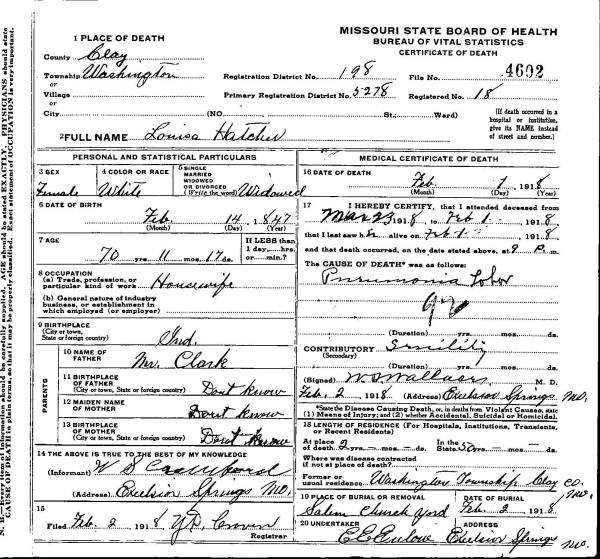 MISSOURI STATE BOARD OF HEALTH
BUREAU OF VITAL STATISTICS
CERTIFICATE OF DEATH
1 PLACE OF DEATH
County Clay
Township Washington
or
Village
or
City (NO. St.; Ward)
Registration District No. 198 File No. 4602
Primary Registration District No. 5278 Registered No. 18
[If death occurred in
a hospital or institution,
give its NAME instead
of street and number.]
2 FULL NAME Louisa Hatcher
PERSONAL AND STATISTICAL PARTICULARS
3 SEX
Female
4 COLOR OR RACE
White
5 SINGLE
MARRIED
WIDOWED
OR DIVORCED
(Write the word) Widowed
6 DATE OF BIRTH
Feb. 14, 1847
(Month) (Day) (Year)
7 AGE
70 yrs. 11 mos. 17 ds.
If LESS than
1 day,...hrs.
or......min.?
8 OCCUPATION
(a) Trade, profession, or
particular kind of work Housewife
(b) General nature of industry
business, or establishment in
which employed (or employer)
9 BIRTHPLACE
(City or town,
State or foreign country) Ind.
PARENTS
10 NAME OF
FATHER Mr. Clark
11 BIRTHPLACE OF
FATHER
(City or town, State or foreign country) Dont know
12 MAIDEN NAME
OF MOTHER Dont know
13 BIRTHPLACE OF
MOTHER
(City or town, State or foreign country) Dont know
14 THE ABOVE IS TRUE TO THE BEST OF MY KNOWLEDGE
(Informant) W S
(Address) Excelsior Springs Mo.
15
Filed Feb. 2 1918 Craven
Registrar
MEDICAL CERTIFICATE OF DEATH
16 DATE OF DEATH
Feb. 1 1918
(Month) (Day) (Year)
17 I HEREBY CERTIFY, that I attended deceased from
23 1918, to Feb 1 1918
that I last saw h alive on Feb 1 1918
and that death occurred, on the date stated above, at 9 P. m.
The CAUSE OF DEATH* was as follows:
Pneumonia Lobar
(Duration) yrs. mos. ds.
CONTRIBUTORY Senility
(Secondary)
(Duration) yrs. mos. ds.
(Signed) M. D.
Feb. 2 1918 (Address) Excelsior Springs Mo.
*State the Disease Causing Death, or, in deaths from Violent Causes, state
(1) Means of Injury; and (2) whether Accidental, Suicidal or Homicidal.
18 LENGTH OF RESIDENCE (For Hospitals, Institutions, Transients,
or Recent Residents)
At place In the
of death 2 yrs. mos. ds. State 50 yrs. mos. ds.
Where was disease contracted
if not at place of death?
Former or
usual residence Washington Township Clay Co. Mo.
19 PLACE OF BURIAL OR REMOVAL
Salem Church Yard
DATE OF BURIAL
Feb. 2 1918
20 UNDERTAKER
ADDRESS
Excelsior Springs Mo.